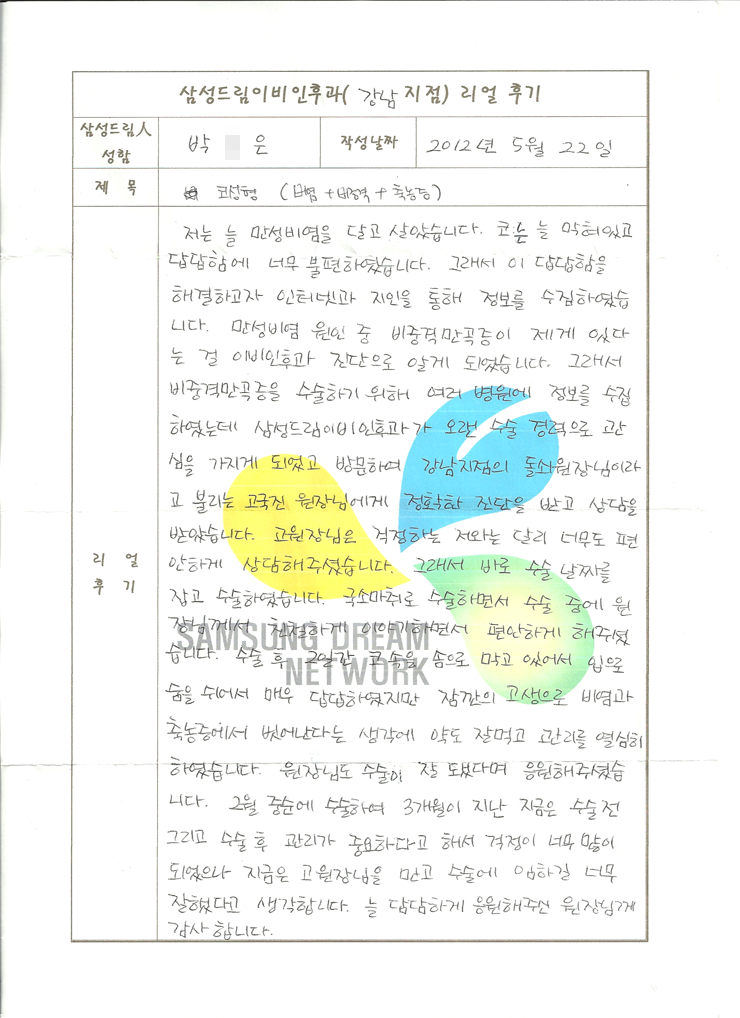 삼성드림이비인후과( 강남 지점) 리얼 후기
삼성드림人 성함
박 은
작성날짜
2012년 5월 22일
제 목
코성형 (비염+비중격+축농증)
리 얼 후 기
저는 늘 만성비염을 달고 살았습니다. 코는 늘 막혀있고
답답함에 너무 불편하였습니다. 그래서 이 답답함을
해결하고자 인터넷과 지인을 통해 정보를 수집하였습
니다. 만성비염 원인 중 비중격만곡증이 제게 있다
는 걸 이비인후과 진단으로 알게 되었습니다. 그래서
비중격만곡증을 수술하기 위해 여러 병원에 정보를 수집
하였는데 삼성드림이비인후과가 오랜 수술 경력으로 관
심을 가지게 되었고 방문하여 강남지점의 돌쇠원장님이라
고 불리는 고국진 원장님에게 정확한 진단을 받고 상담을
받았습니다. 고원장님은 걱정하는 저와는 달리 너무도 편
안하게 상담해주셨습니다. 그래서 바로 수술 날짜를
잡고 수술하였습니다. 국소마취로 수술하면서 수술 중에 원
장님께서 친절하게 이야기하면서 편안하게 해주셨
습니다. 수술 후 2일간 코 속을 솜으로 막고 있어서 입으로
숨을 쉬어서 매우 답답하였지만 잠깐의 고생으로 비염과
축농증에서 벗어난다는 생각에 약도 잘먹고 관리를 열심히
하였습니다. 원장님도 수술이 잘 됬다며 응원해주셨습
니다. 2월 중순에 수술하여 3개월이 지난 지금은 수술 전
그리고 수술 후 관리가 중요하다고 해서 걱정이 너무 많이
되었으나 지금은 고원장님을 만나고 수술에 임하길 너무
잘했다고 생각합니다. 늘 담담하게 응원해주신 원장님께
감사합니다.
SAMSUNG DREAM
NETWORK